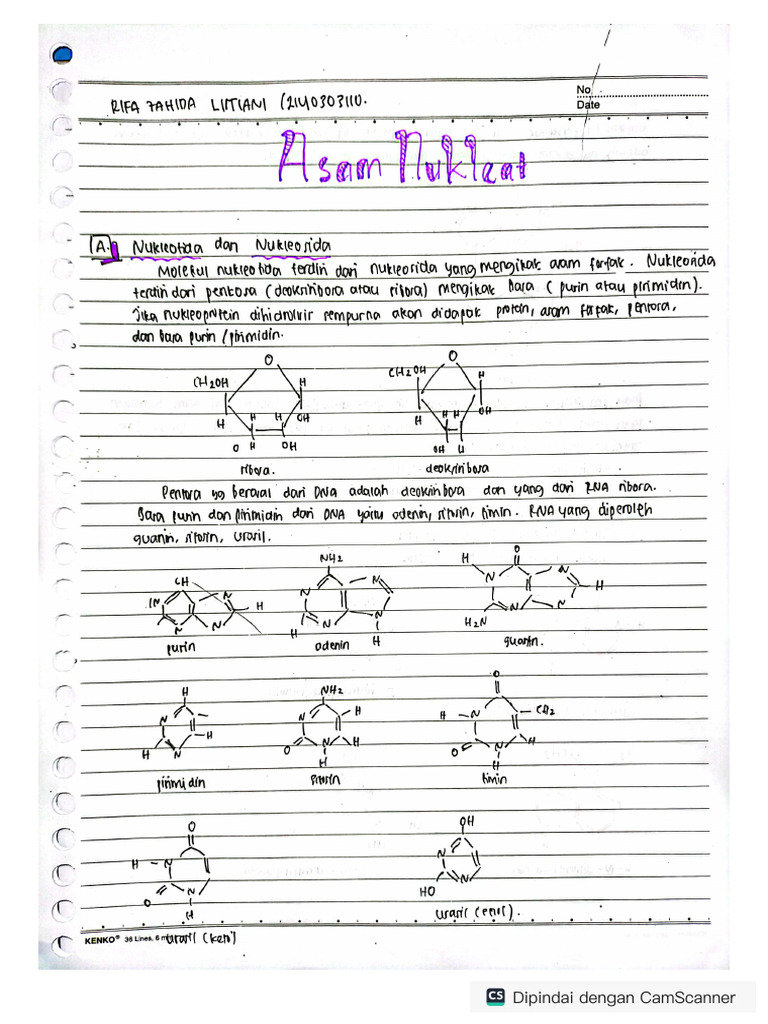 No.
RIFA ZAHIDA LISTIANI (2140303110.
Date
Asam Nukleat
A. Nukleotida dan Nukleosida
Molekul nukleotida terdiri dari nukleosida yang mengikat asam fosfat. Nukleosida
terdiri dari pentosa (deoksiribosa atau ribosa) mengikat basa (purin atau pirimidin).
Jika nukleoprotein dihidrolisis sempurna akan didapat protein, asam fosfat, pentosa,
dan basa purin/pirimidin.
O O
CH2OH H CH2OH H
H H H OH H H H OH
O H H OH OH H
ribosa. deoksiribosa
Pentosa yg berasal dari DNA adalah deoksiribosa dan yang dari RNA ribosa.
Basa purin dan pirimidin dari DNA yaitu adenin, sitosin, timin. RNA yang diperoleh
guanin, sitosin, urasil.
CH NH2 H O
N N H N N N H
N N H N N H H2N N N
purin adenin guanin.
H NH2 O
N N H H N CH2
H N H O N H H O N H H
pirimidin sitosin timin
O OH
H N N
O N H HO N
urasil (enil).
KENKO® 36 Lines, 6 m urasil (keto)
CS Dipindai dengan CamScanner